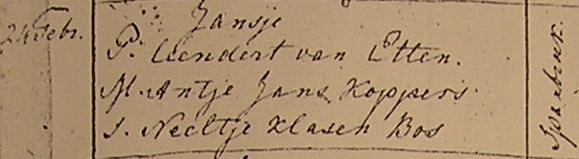 24 Febr.
Jansje
P. Leendert van Etten.
M. Antje Jans Koppers.
S. Neeltje Klasen Bos